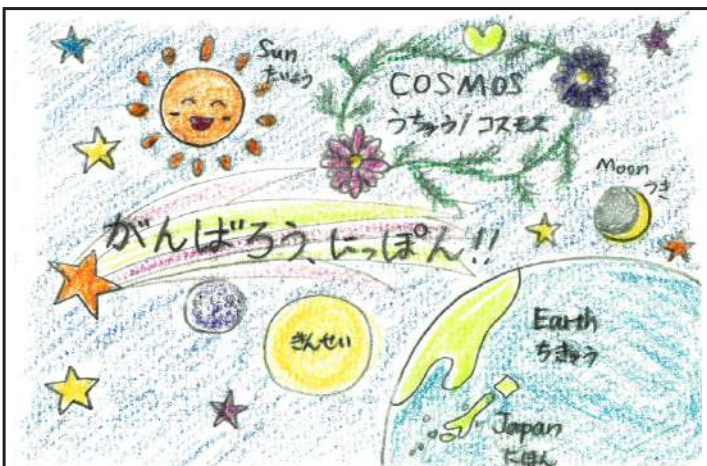 Sun
たいよう
COSMOS
うちゅう/コスモス
Moon
つき
がんばろう、にっぽん!!
きんせい
Earth
ちきゅう
Japan
にほん